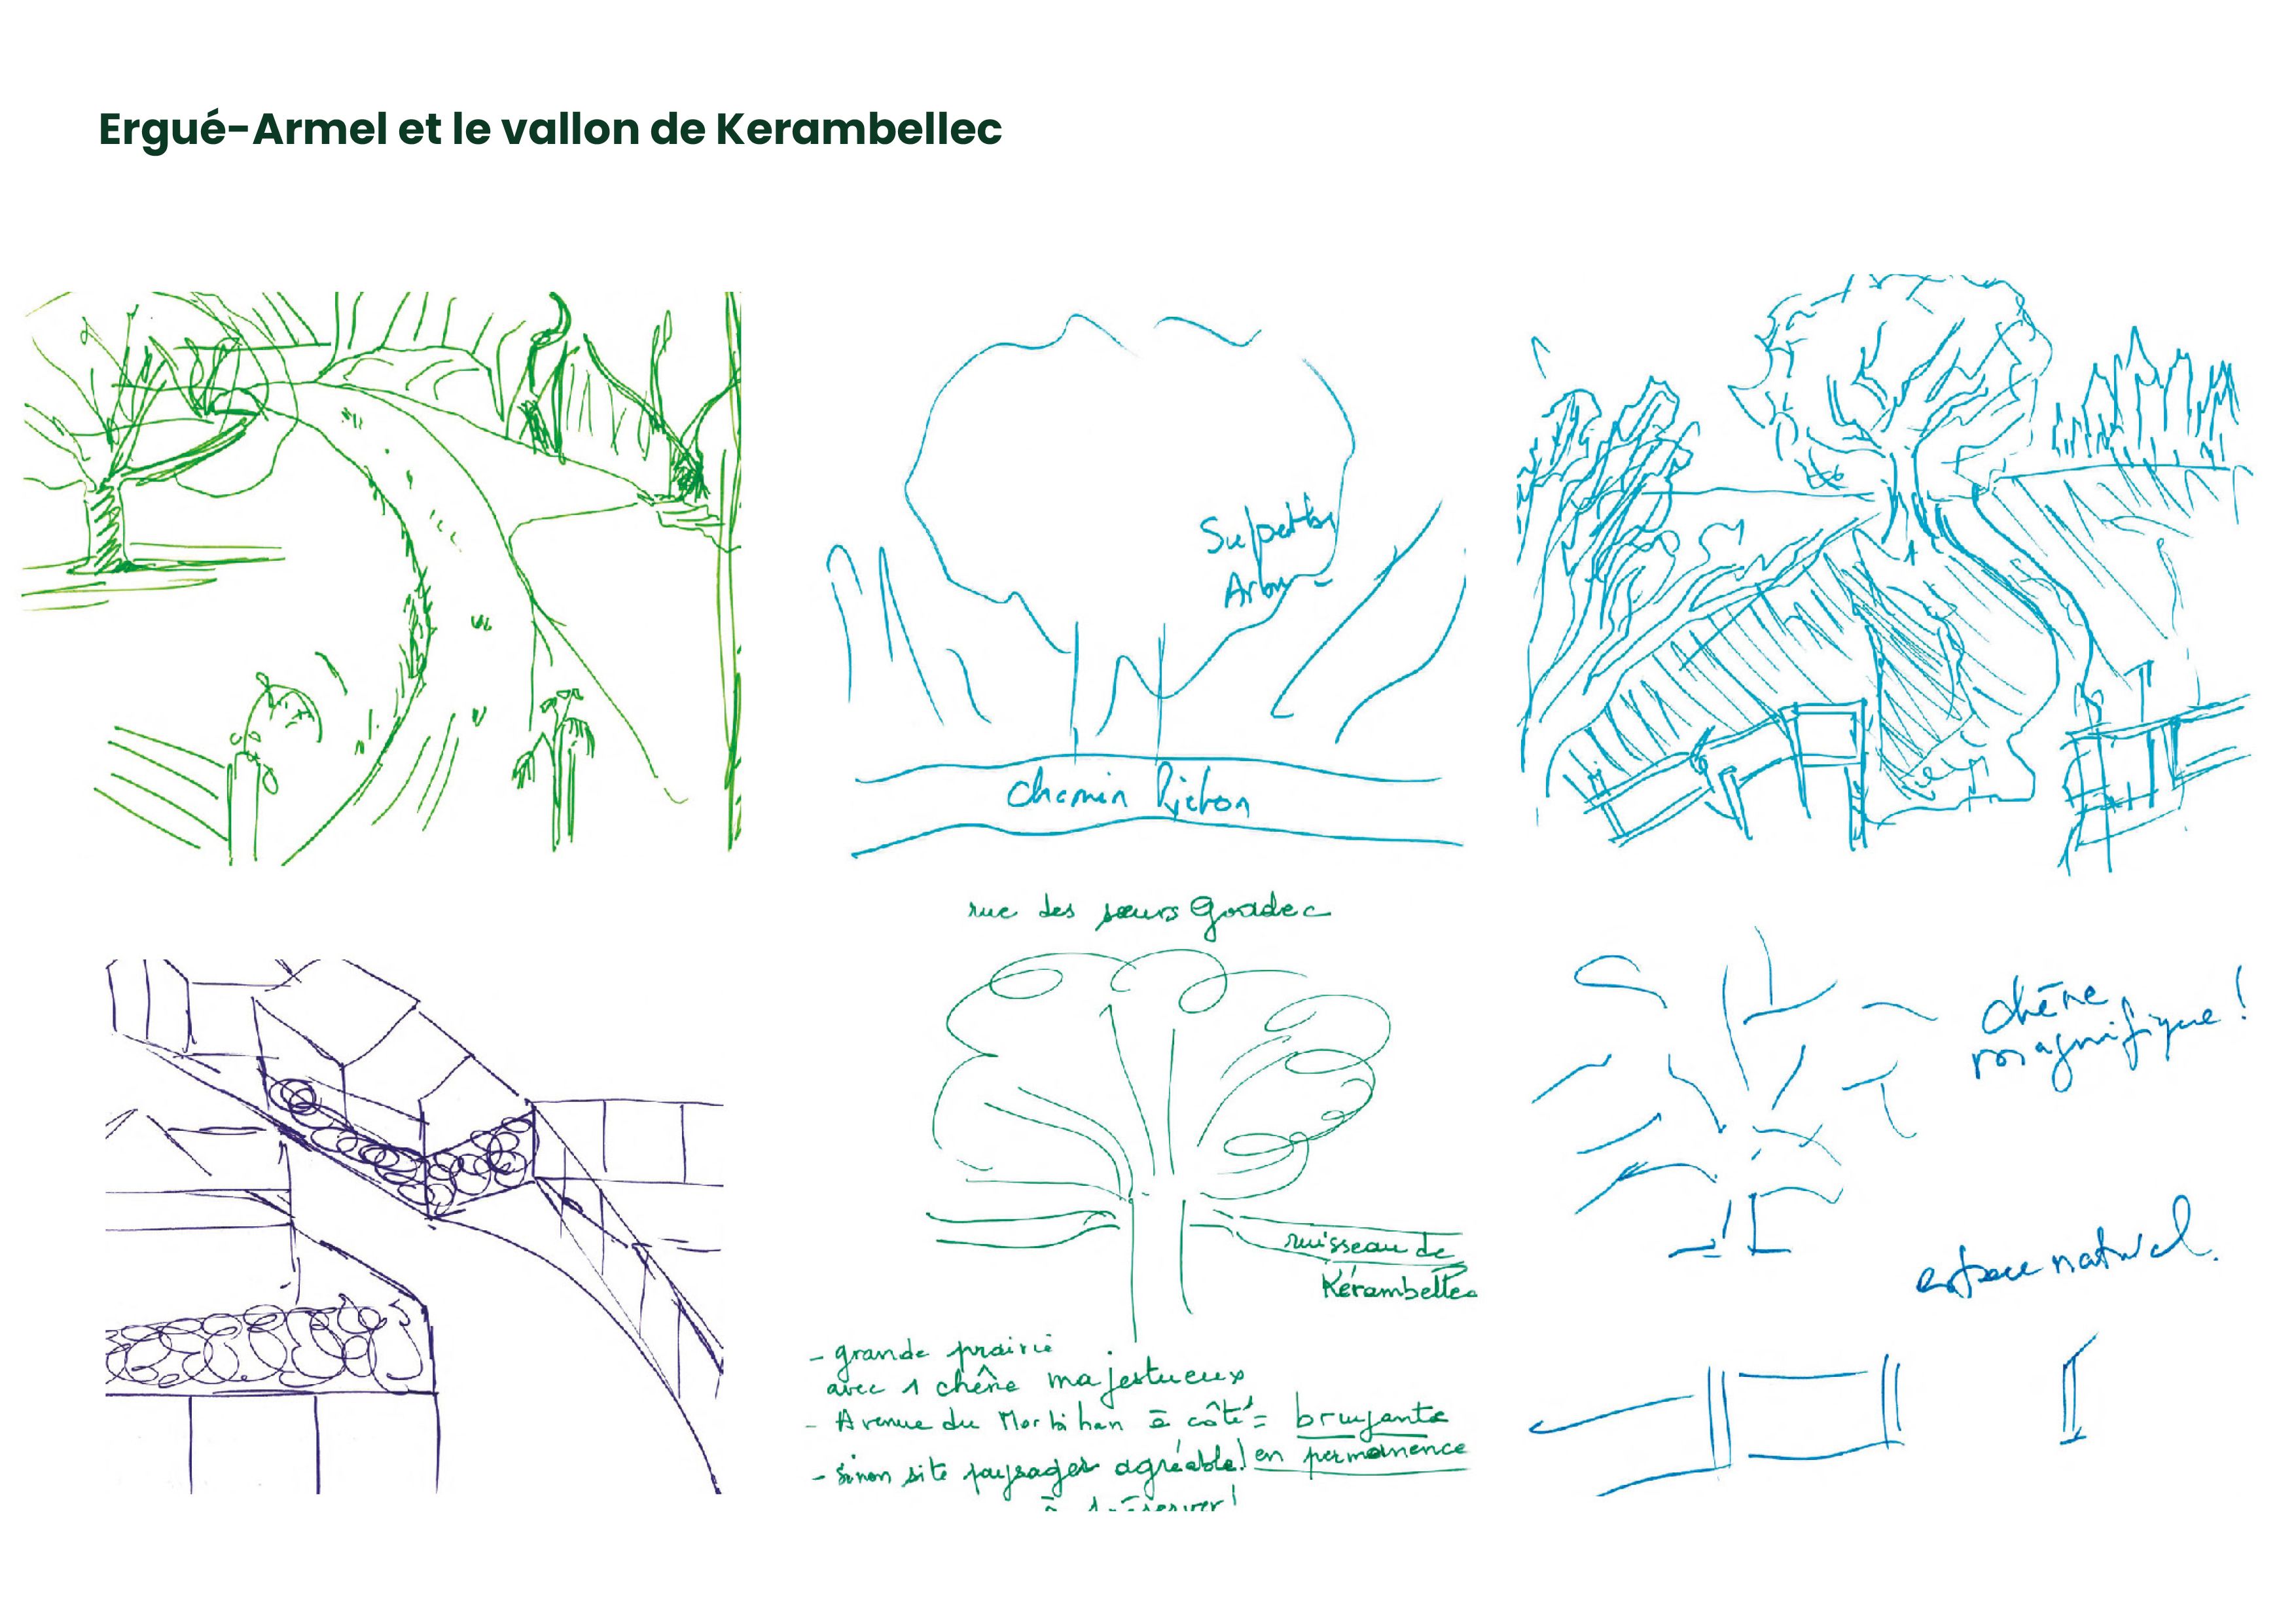 Ergué-Armel et le vallon de Kerambellec
Superbe
Arbre
Chemin Piéton
rue des sœurs Goadec
ruisseau de
Kérambellec
- grande prairie
avec 1 chêne majestueux
- Avenue du Morbihan à côté = bruyante
- sinon site paysager agréable! en permanence
à préserver!
chêne
magnifique!
espace naturel.